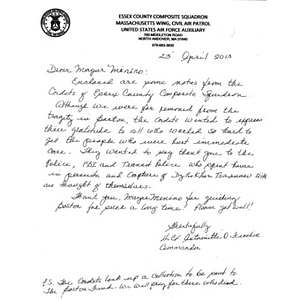 ESSEX COUNTY COMPOSITE SQUADRON
MASSACHUSETTS WING, CIVIL AIR PATROL
UNITED STATES AIR FORCE AUXILIARY
NORTH ANDOVER, MA 01845
23 April 2013
Dear Mayor Menino:
Enclosed are some notes from the
Cadets of Essex County Composite Squadron
Although we were far removed from the
tragity in Boston, the Cadets wanted to express
their gratitude to all who worked so hard to
get the people who were hurt immediate
care. They wanted to say thank you to the
Police, FBI and Transit Police who spent hours
in persuite and capture of
no thought of themselves.
Thank you, Mayor Menino for guiding
Boston for such a long time!
Respectfully
Lt Col
Commander
P.S. The Cadets took up a collection to be sent to
The Boston Fund. We will pray for those who died.